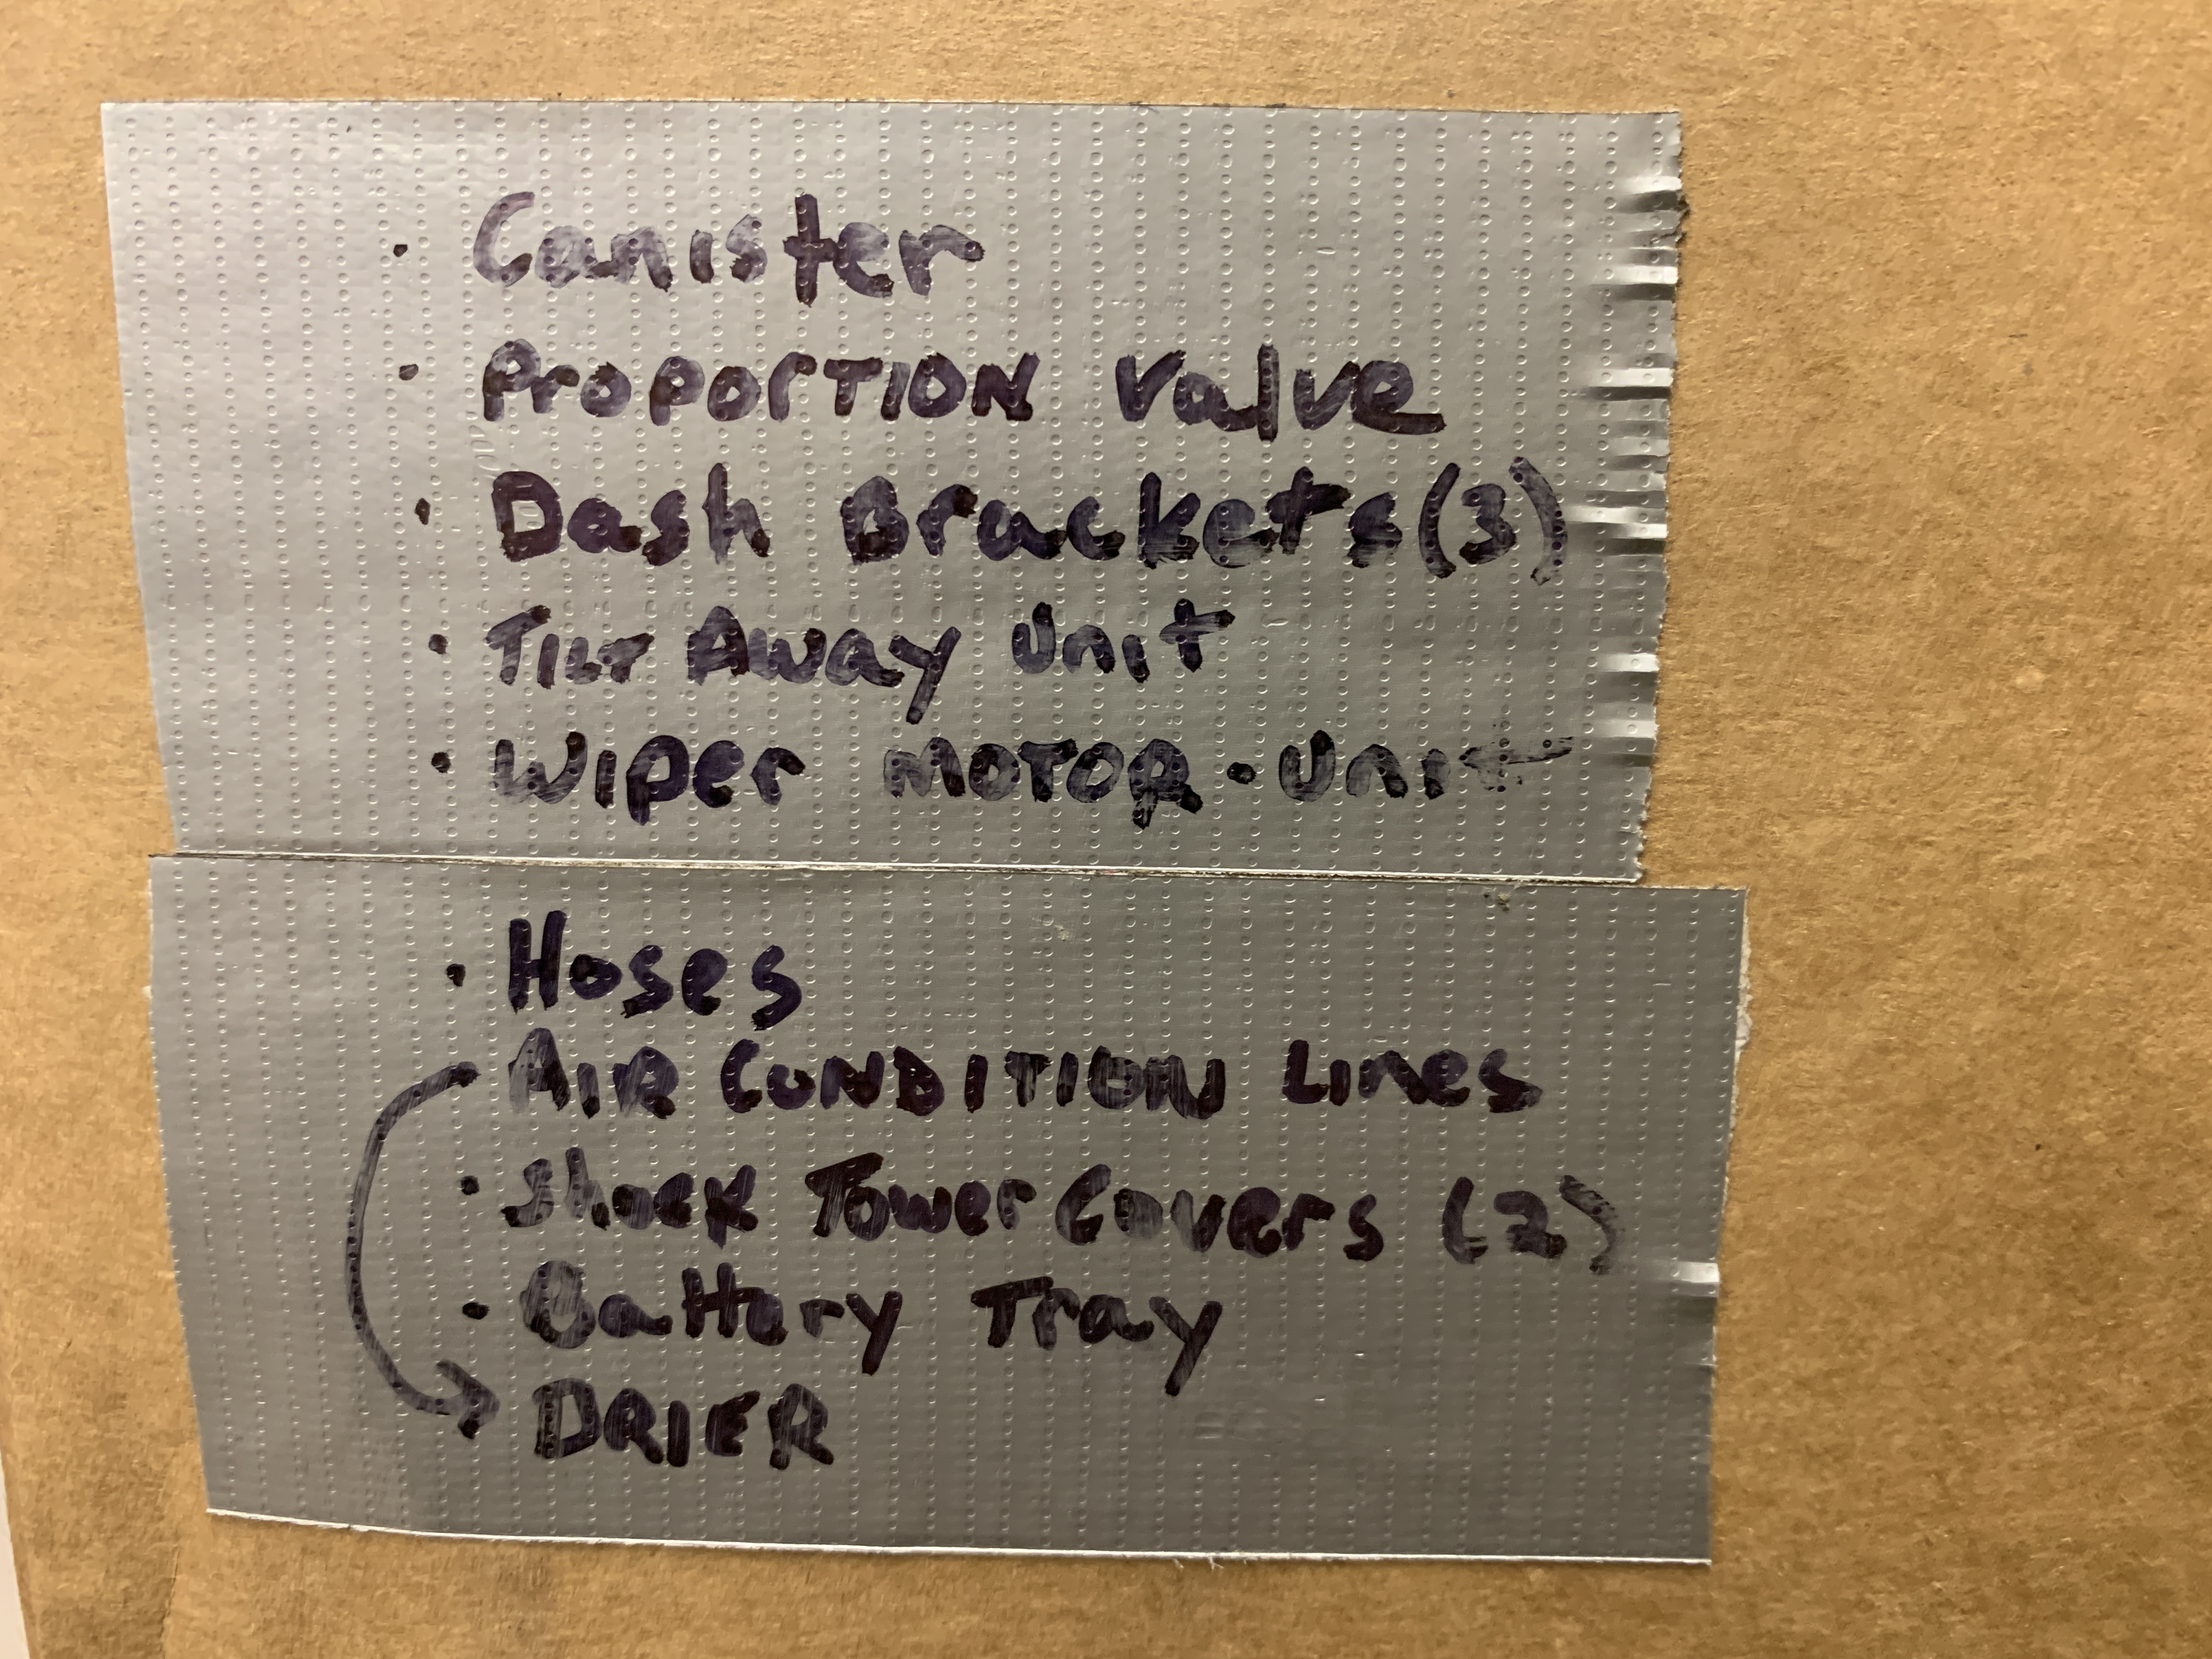 · Canister
· Proportion Valve
· Dash Brackets (3)
· Tilt Away Unit
· Wiper Motor · Unit
· Hoses
Air Condition Lines
· Shock Tower Covers (2)
· Battery Tray
DRIER